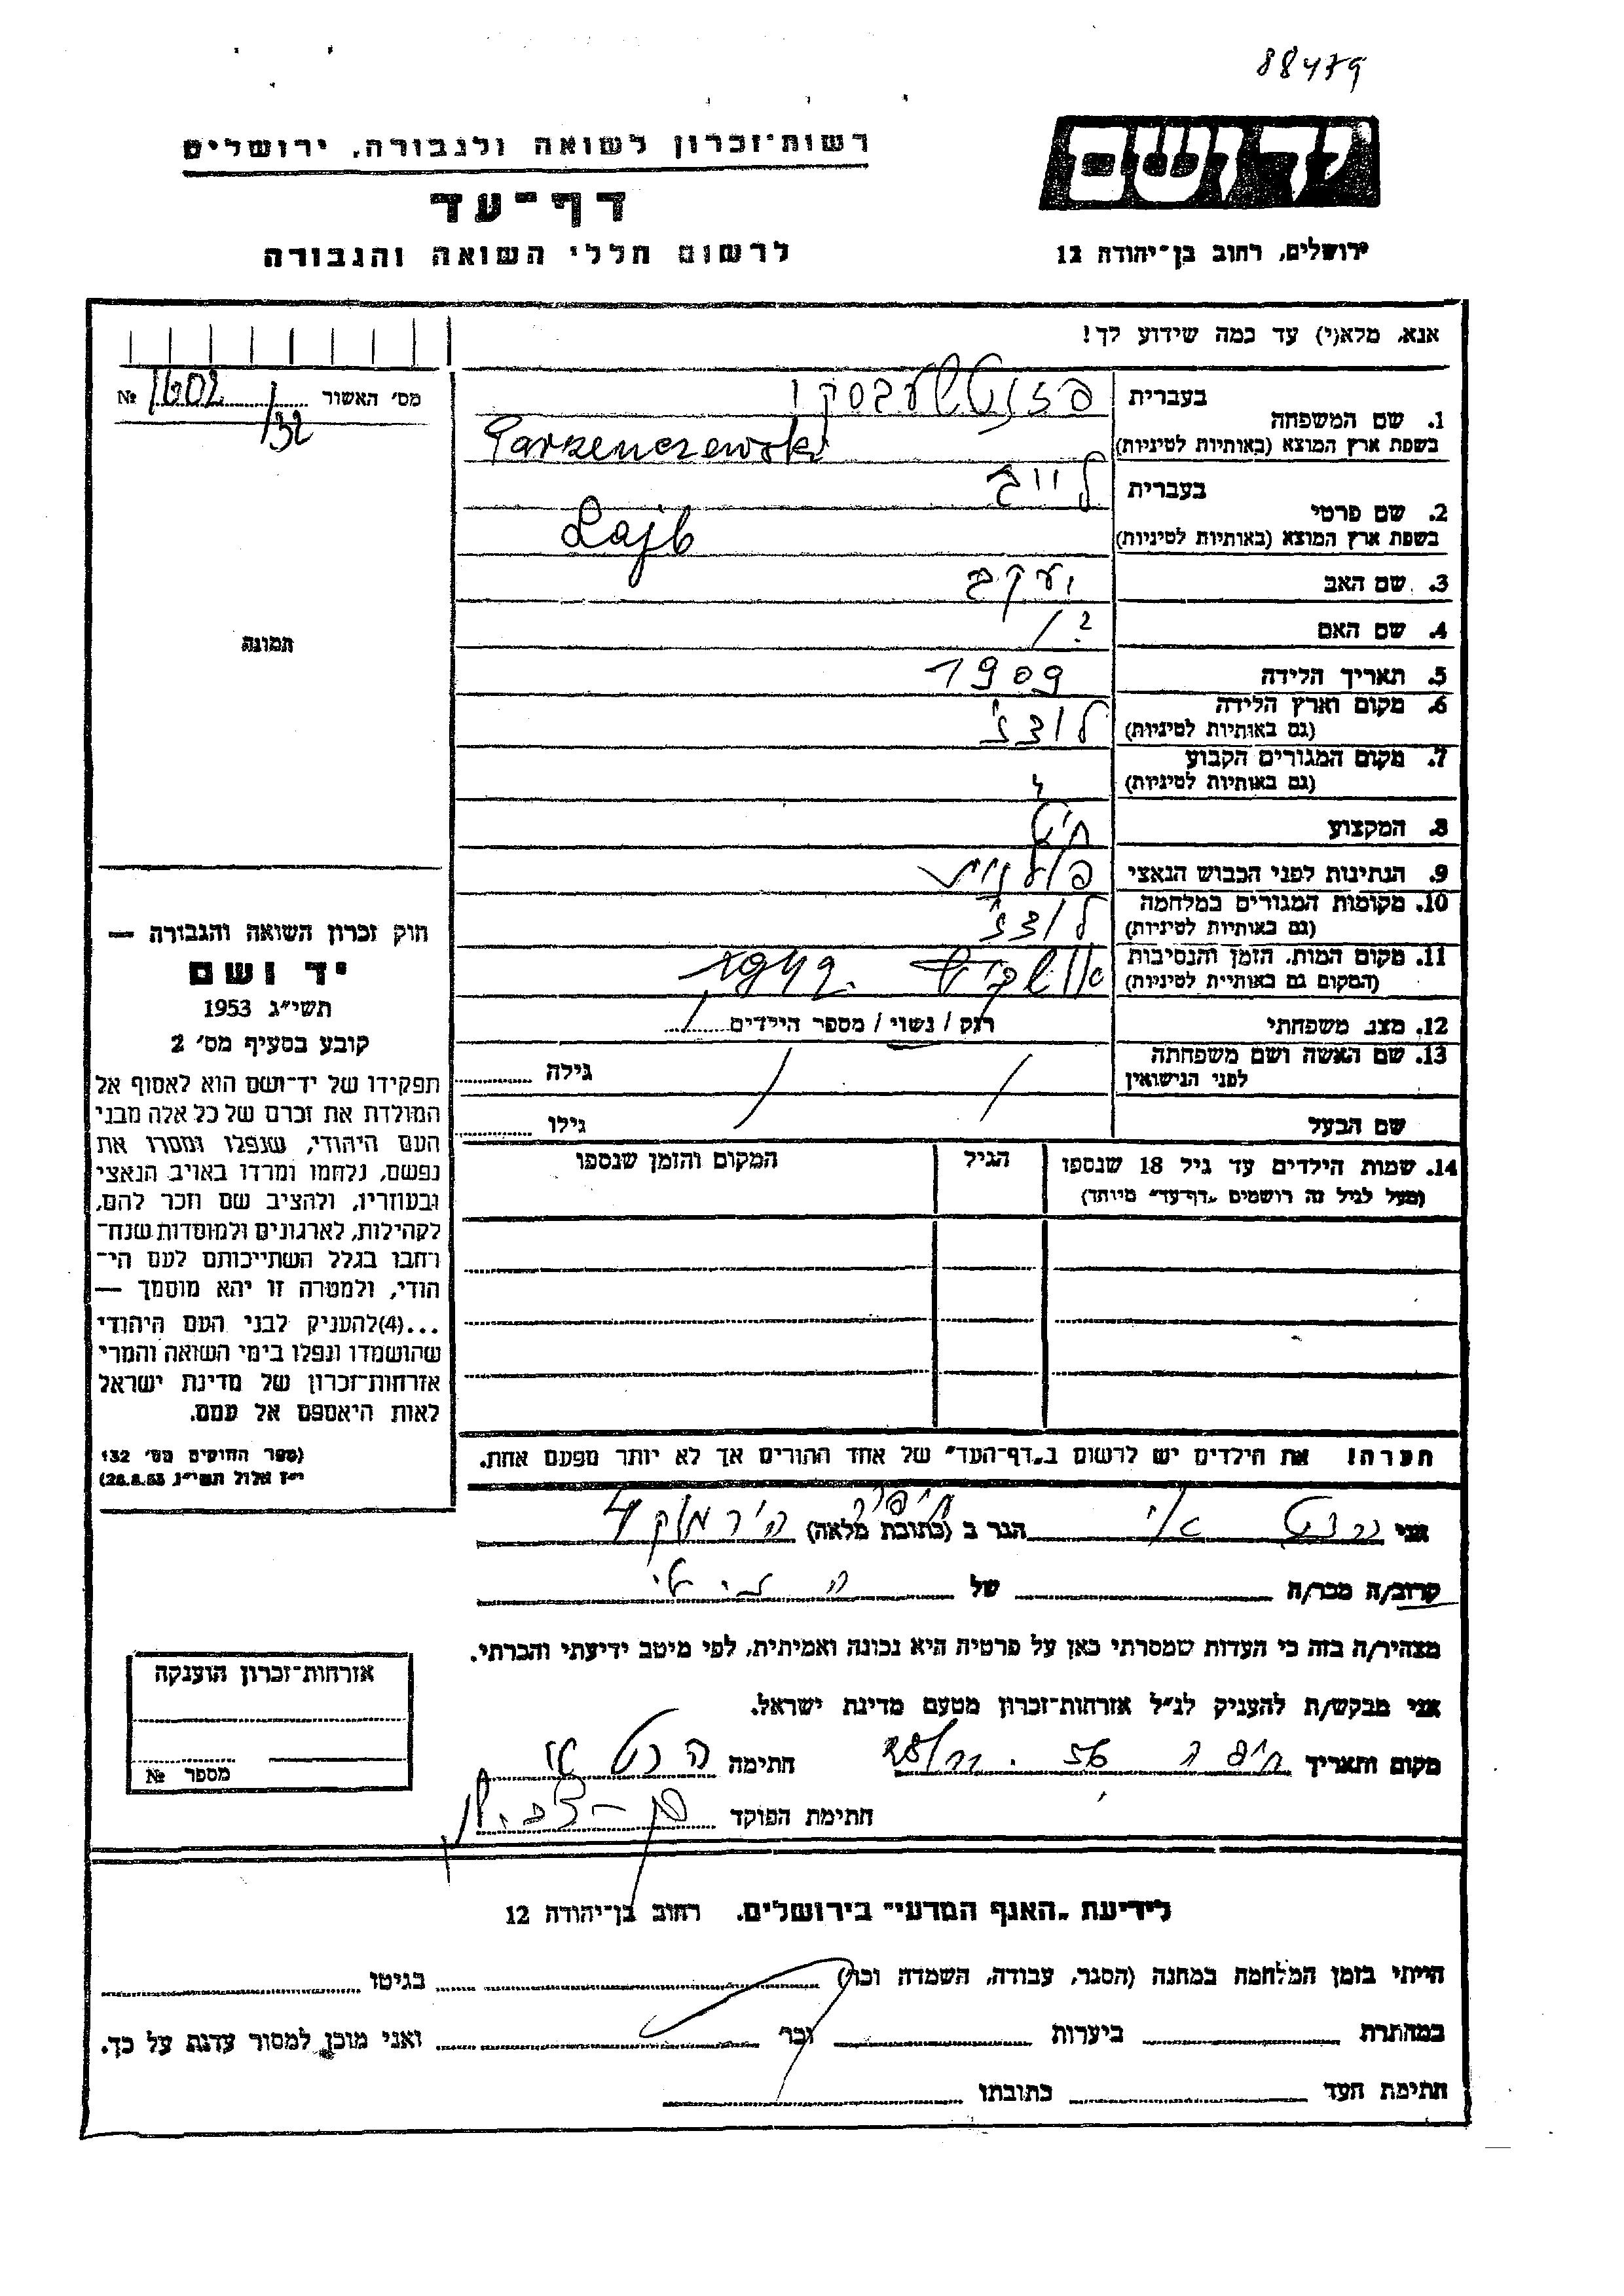 88479
רשות־זכרון לשואה ולגבורה, ירושלים
יד ושם
דף־עד
לרשום חללי השואה והגבורה
ירושלים, רחוב בן־יהודה 12
אנא, מלא(י) עד כמה שידוע לך!
מס׳ האשור № 1602/32
1. שם המשפחה
בעברית
בשפת ארץ המוצא (באותיות לטיניות) Parzenczewski
2. שם פרטי
בעברית לייב
בשפת ארץ המוצא (באותיות לטיניות) Lajb
3. שם האב יעקב
4. שם האם ?/
5. תאריך הלידה 1909
6. מקום וארץ הלידה (גם באותיות לטיניות) לודז׳
7. מקום המגורים הקבוע (גם באותיות לטיניות)
8. המקצוע חיט
9. הנתינות לפני הכבוש הנאצי פולנית
10. מקומות המגורים במלחמה (גם באותיות לטיניות) לודז׳
11. מקום המות, הזמן והנסיבות (המקום גם באותיות לטיניות) אושביץ
12. מצב משפחתי רווק / נשוי / מספר הילדים
13. שם האשה ושם משפחתה לפני הנישואין גילה
שם הבעל גילו
14. שמות הילדים עד גיל 18 שנספו
(מעל לגיל זה רושמים „דף־עד״ מיוחד)
הגיל
המקום והזמן שנספו
הערה! את הילדים יש לרשום ב„דף־העד״ של אחד ההורים אך לא יותר מפעם אחת.
תמונה
חוק זכרון השואה והגבורה —
יד ושם
תשי״ג 1953
קובע בסעיף מס׳ 2
תפקידו של יד־ושם הוא לאסוף אל
המולדת את זכרם של כל אלה מבני
העם היהודי, שנפלו ומסרו את
נפשם, נלחמו ומרדו באויב הנאצי
ובעוזריו, ולהציב שם וזכר להם,
לקהילות, לארגונים ולמוסדות שנח־
רחבו בגלל השתייכותם לעם הי־
הודי, ולמטרה זו יהא מוסמך —
...(4)להעניק לבני העם היהודי
שהושמדו ונפלו בימי השואה והמרי
אזרחות־זכרון של מדינת ישראל
לאות היאספם אל עמם.
(ספר החוקים מס׳ 132
י״ז אלול תשי״ג 28.8.53)
אני הגר ב (כתובת מלאה) חיפה הירמוק 4
קרוב/ה מכר/ה של
מצהיר/ה בזה כי העדות שמסרתי כאן על פרטיה היא נכונה ואמיתית, לפי מיטב ידיעתי והכרתי.
אני מבקש/ת להעניק לנ״ל אזרחות־זכרון מטעם מדינת ישראל.
מקום ותאריך חיפה חתימה
חתימת הפוקד
אזרחות־זכרון הוענקה
מספר №
לידיעת „האגף המדעי״ בירושלים, רחוב בן־יהודה 12
הייתי בזמן המלחמה במחנה (הסגר, עבודה, השמדה וכו׳) בגיטו
במחתרת ביערות וכו׳ ואני מוכן למסור עדות על כך.
חתימת העד כתובתו